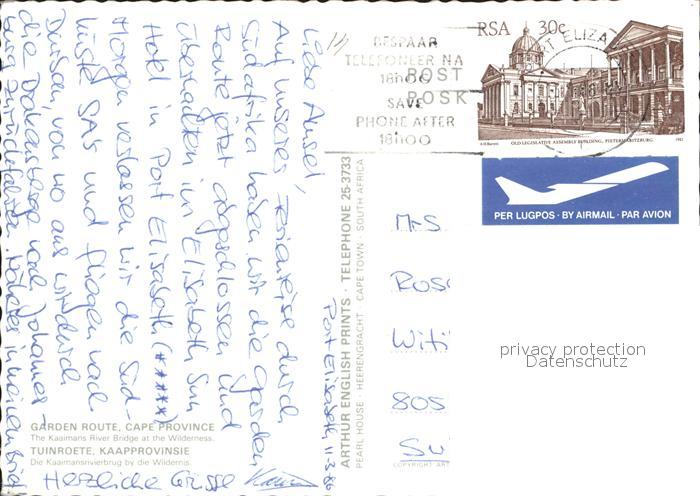 BESPAAR
TELEFONEER NA
18h00
SAVE
PHONE AFTER
18h00
POST
POSK
PORT ELIZA
RSA 30c
OLD LEGISLATIVE ASSEMBLY BUILDING, PIETERMARITZBURG.
1982
PER LUGPOS · BY AIRMAIL · PAR AVION
Port Elisabeth, 11.3.86
Liebe Ansel,
Auf unserer Ferienreise durch
Südafrika haben wir die Garden
Route jetzt abgeschlossen und
übernachten im Elisabeth Sun
Hotel in Port Elisabeth (*****)
Morgen verlassen wir die Süd-
küste SA's und fliegen nach
Durban, von wo aus wir durch
die Drakensberge nach Johannes-
Herzliche Grüsse
ARTHUR ENGLISH PRINTS · TELEPHONE 25-3733
PEARL HOUSE · HEERENGRACHT · CAPE TOWN · SOUTH AFRICA
Mrs.
Ros
Witi
805
Su
privacy protection
Datenschutz
GARDEN ROUTE, CAPE PROVINCE
The Kaaimans River Bridge at the Wilderness.
TUINROETE, KAAPPROVINSIE
Die Kaaimansrivierbrug by die Wildernis.
COPYRIGHT ART